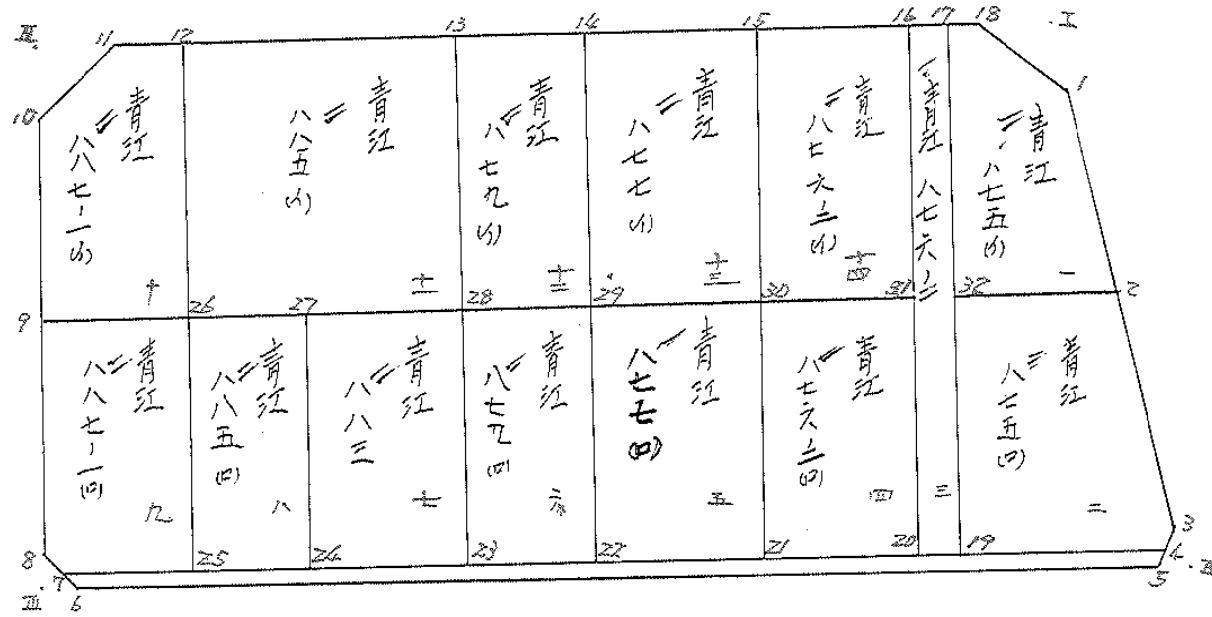 III
11
12
13
14
15
16
17
18
I
10
1
青江
二
八八七-一(イ)
十
青江
二
八八五(イ)
十一
青江
二
八七九(イ)
十二
青江
二
八七七(イ)
十三
青江
二
八七六-二(イ)
十四
青江
八七六-
青江
二
八七五(イ)
一
9
26
27
28
29
30
31
32
2
青江
二
八八七-一(ロ)
九
青江
二
八八五(ロ)
八
青江
二
八八三
七
青江
二
八七九(ロ)
六
青江
八七七(ロ)
五
青江
二
八七六-二(ロ)
四
三
青江
二
八七五(ロ)
二
8
7
6
25
24
23
22
21
20
19
3
4
5
III
II